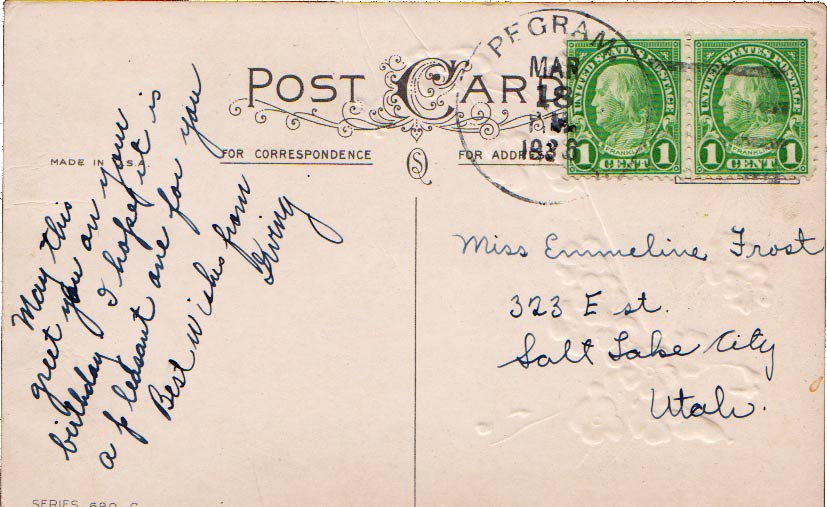 POST CARD
MADE IN U.S.A.
FOR CORRESPONDENCE
FOR ADDRESS
PEGRAM
MAR
18
1936
UNITED STATES POSTAGE
FRANKLIN
1 CENT 1
UNITED STATES POSTAGE
FRANKLIN
1 CENT 1
May this
greet you on your
birthday I hope it is
a pleasant one for you
Best wishes from
Irving
Miss Emmeline Frost
323 E st.
Salt Lake City
Utah.
SERIES 690 C